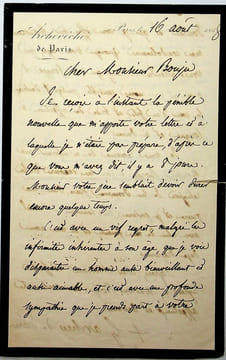 Archevêché
de Paris
16 août
Cher Monsieur Bouju
Je reçois à l'instant la pénible
nouvelle que m'apporte votre lettre et à
laquelle je n'étais pas préparé, d'après ce
que vous m'avez dit, il y a 8 jours.
Monsieur votre père semblait devoir durer
encore quelque temps.
C'est avec un vif regret, malgré les
infirmités inhérentes à son âge que je vois
disparaître un homme aussi bienveillant et
aussi aimable, et c'est avec une profonde
sympathie que je prends part à votre